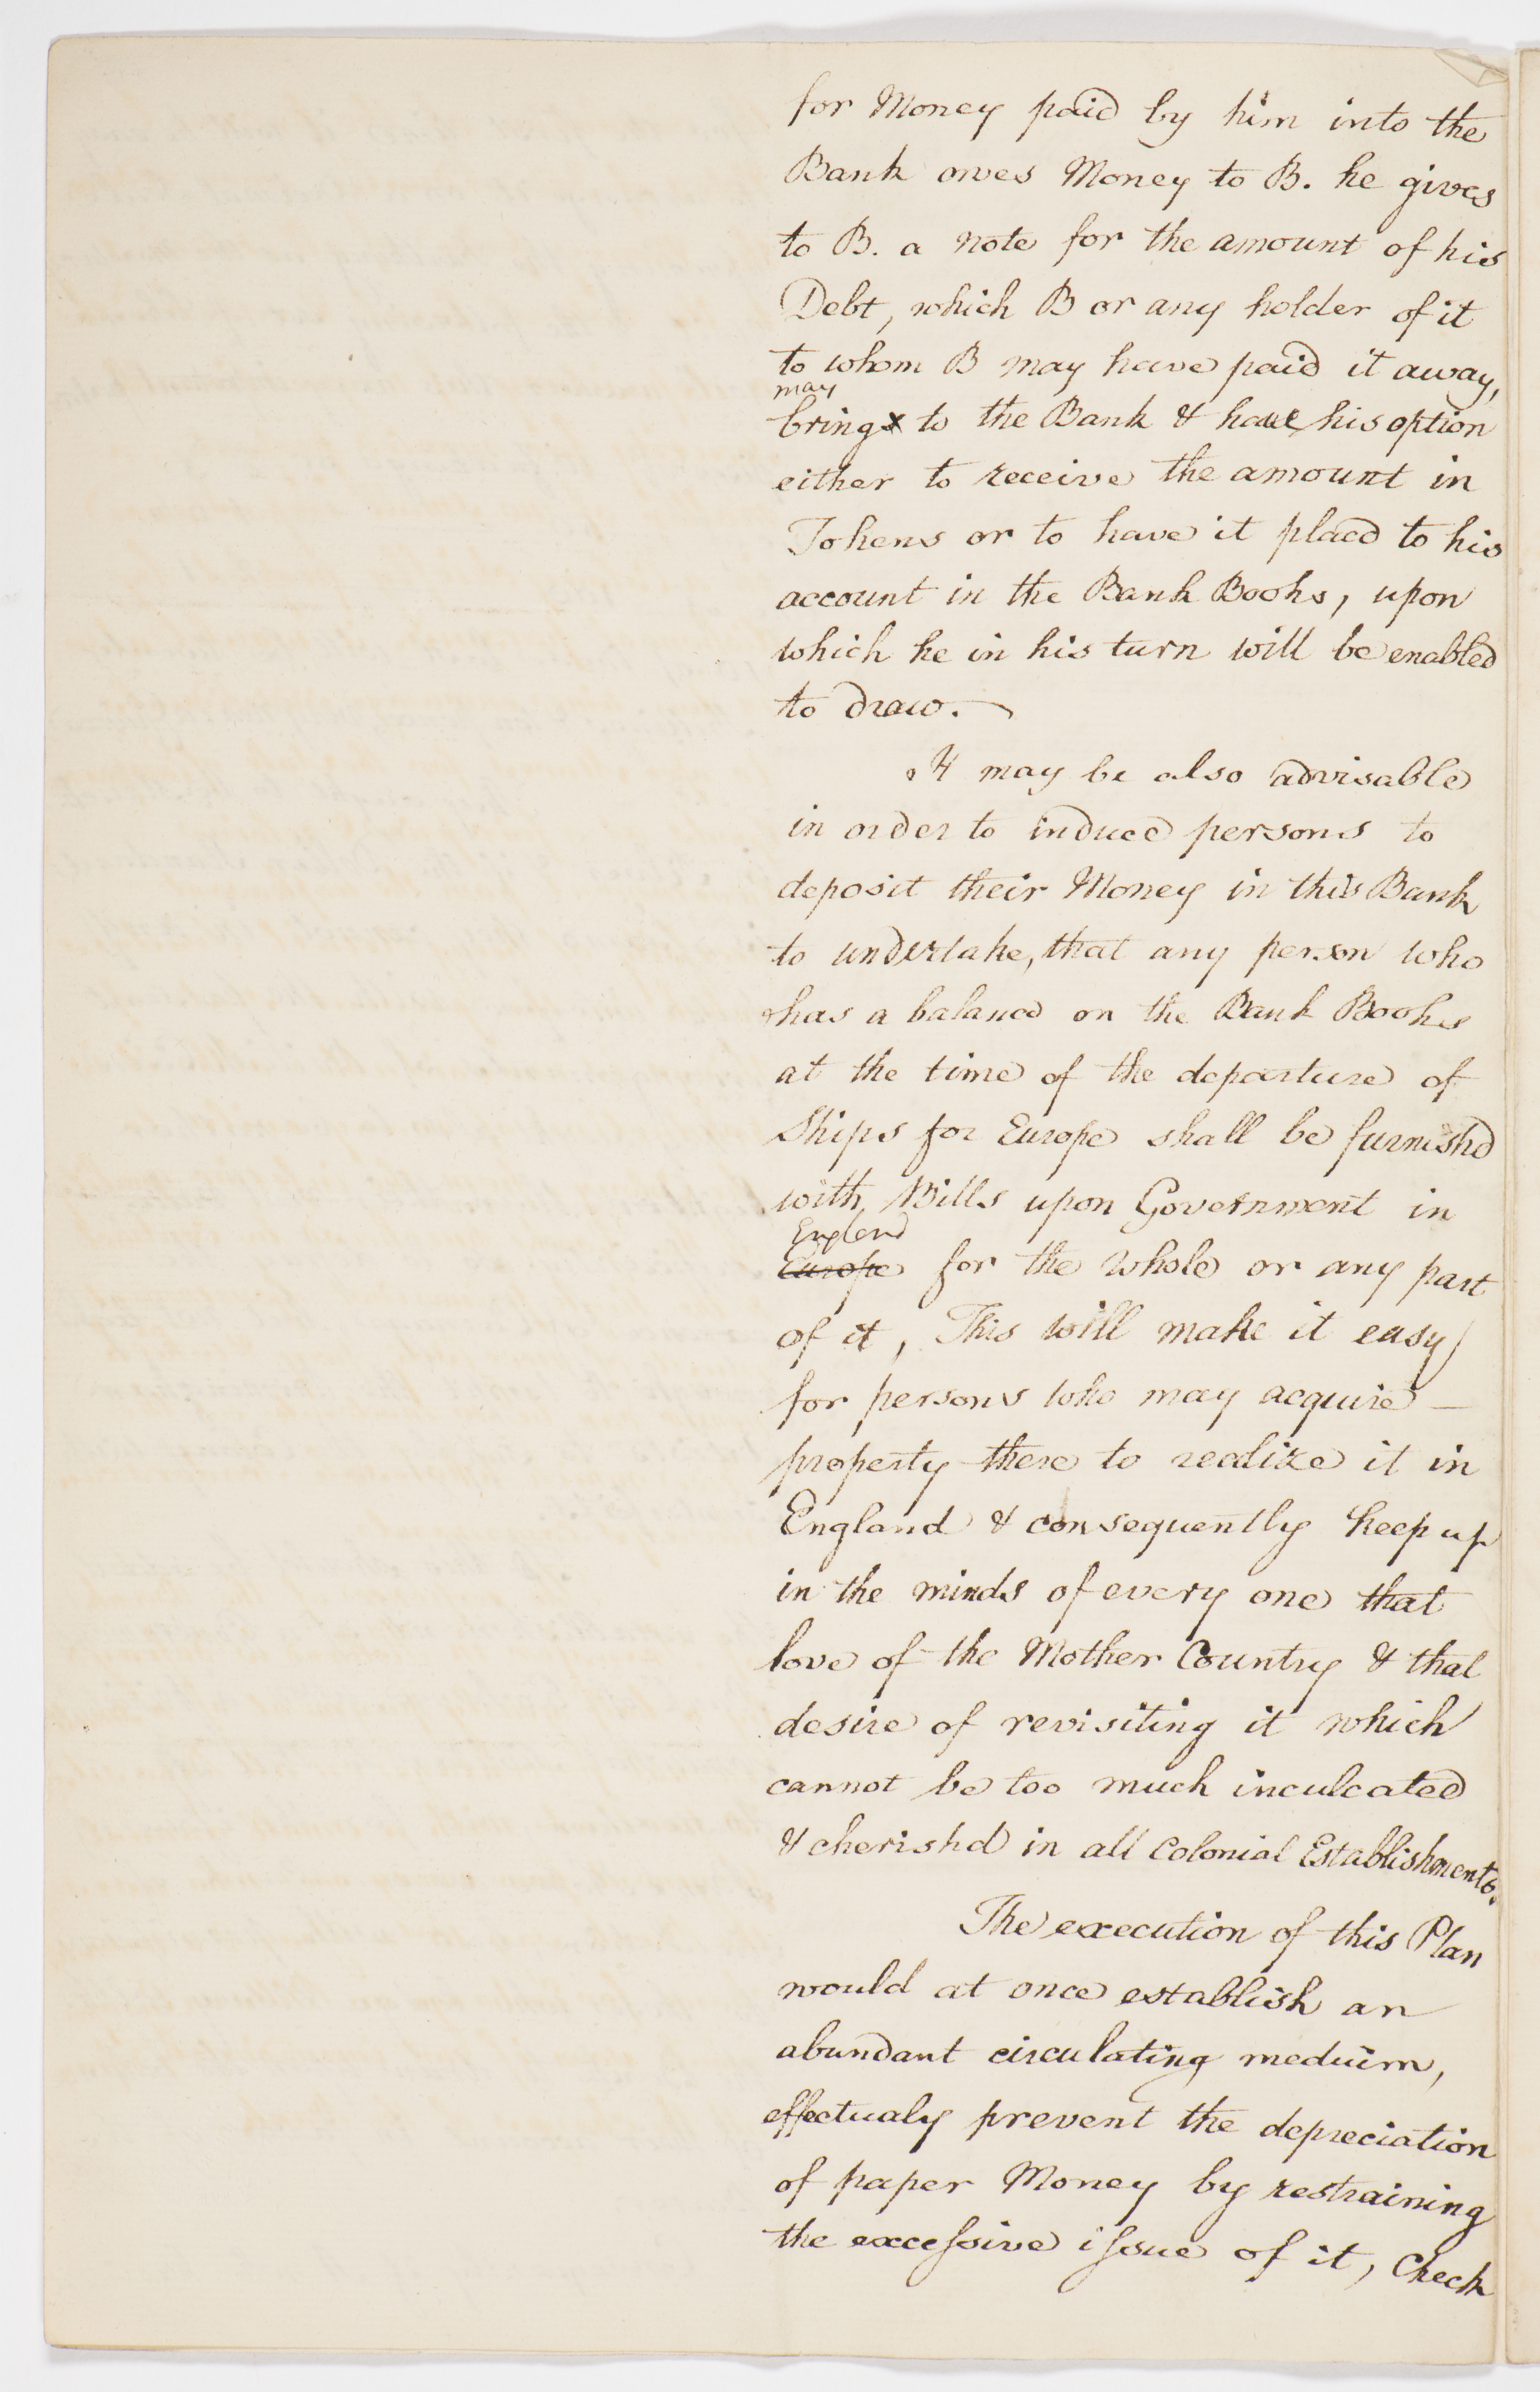 for Money paid by him into the
Bank owes Money to B. he gives
to B. a note for the amount of his
Debt, which B or any holder of it
to whom B may have paid it away,
may
bring to the Bank & have his option
either to receive the amount in
Tokens or to have it placd to his
account in the Bank Books, upon
which he in his turn will be enabled
to draw.
It may be also advisable
in order to induce persons to
deposit their Money in this Bank
to undertake, that any person who
has a balance on the Bank Books
at the time of the departure of
Ships for Europe shall be furnishd
with Bills upon Government in
England
Europe for the whole or any part
of it, This will make it easy
for persons who may acquire —
property there to realize it in
England & consequently keep up
in the minds of every one that
love of the Mother Country & that
desire of revisiting it which
cannot be too much inculcated
& cherishd in all Colonial Establishments.
The execution of this Plan
would at once establish an
abundant circulating medium,
effectualy prevent the depreciation
of paper Money by restraining
the excessive issue of it, Check